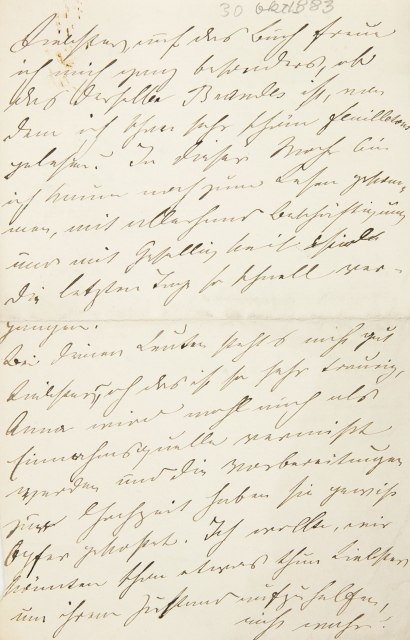 30 Okt 1883
Liebster, auf das Buch freue
ich mich ganz besonders, ob
das derselbe Brandes ist, von
dem ich schon sehr schöne Feuilletons
gelesen? In dieser Woche bin
ich kaum noch zum Lesen gekom-
men, mit allerhand Beschäftigung
und mit Geselligkeit sind
die letzten Tage so schnell ver-
gangen.
Bei deinen Leuten steht's nicht gut
Liebster, ach das ist so sehr traurig,
Anna wird wohl auch als
Einnahmsquelle vermißt
werden und die Vorbereitungen
zur Hochzeit haben sie gewiß
Opfer gekostet. Ich wollte, wir
könnten schon etwas thun Liebster
um ihrem Zustand aufzuhelfen,
nicht wahr?